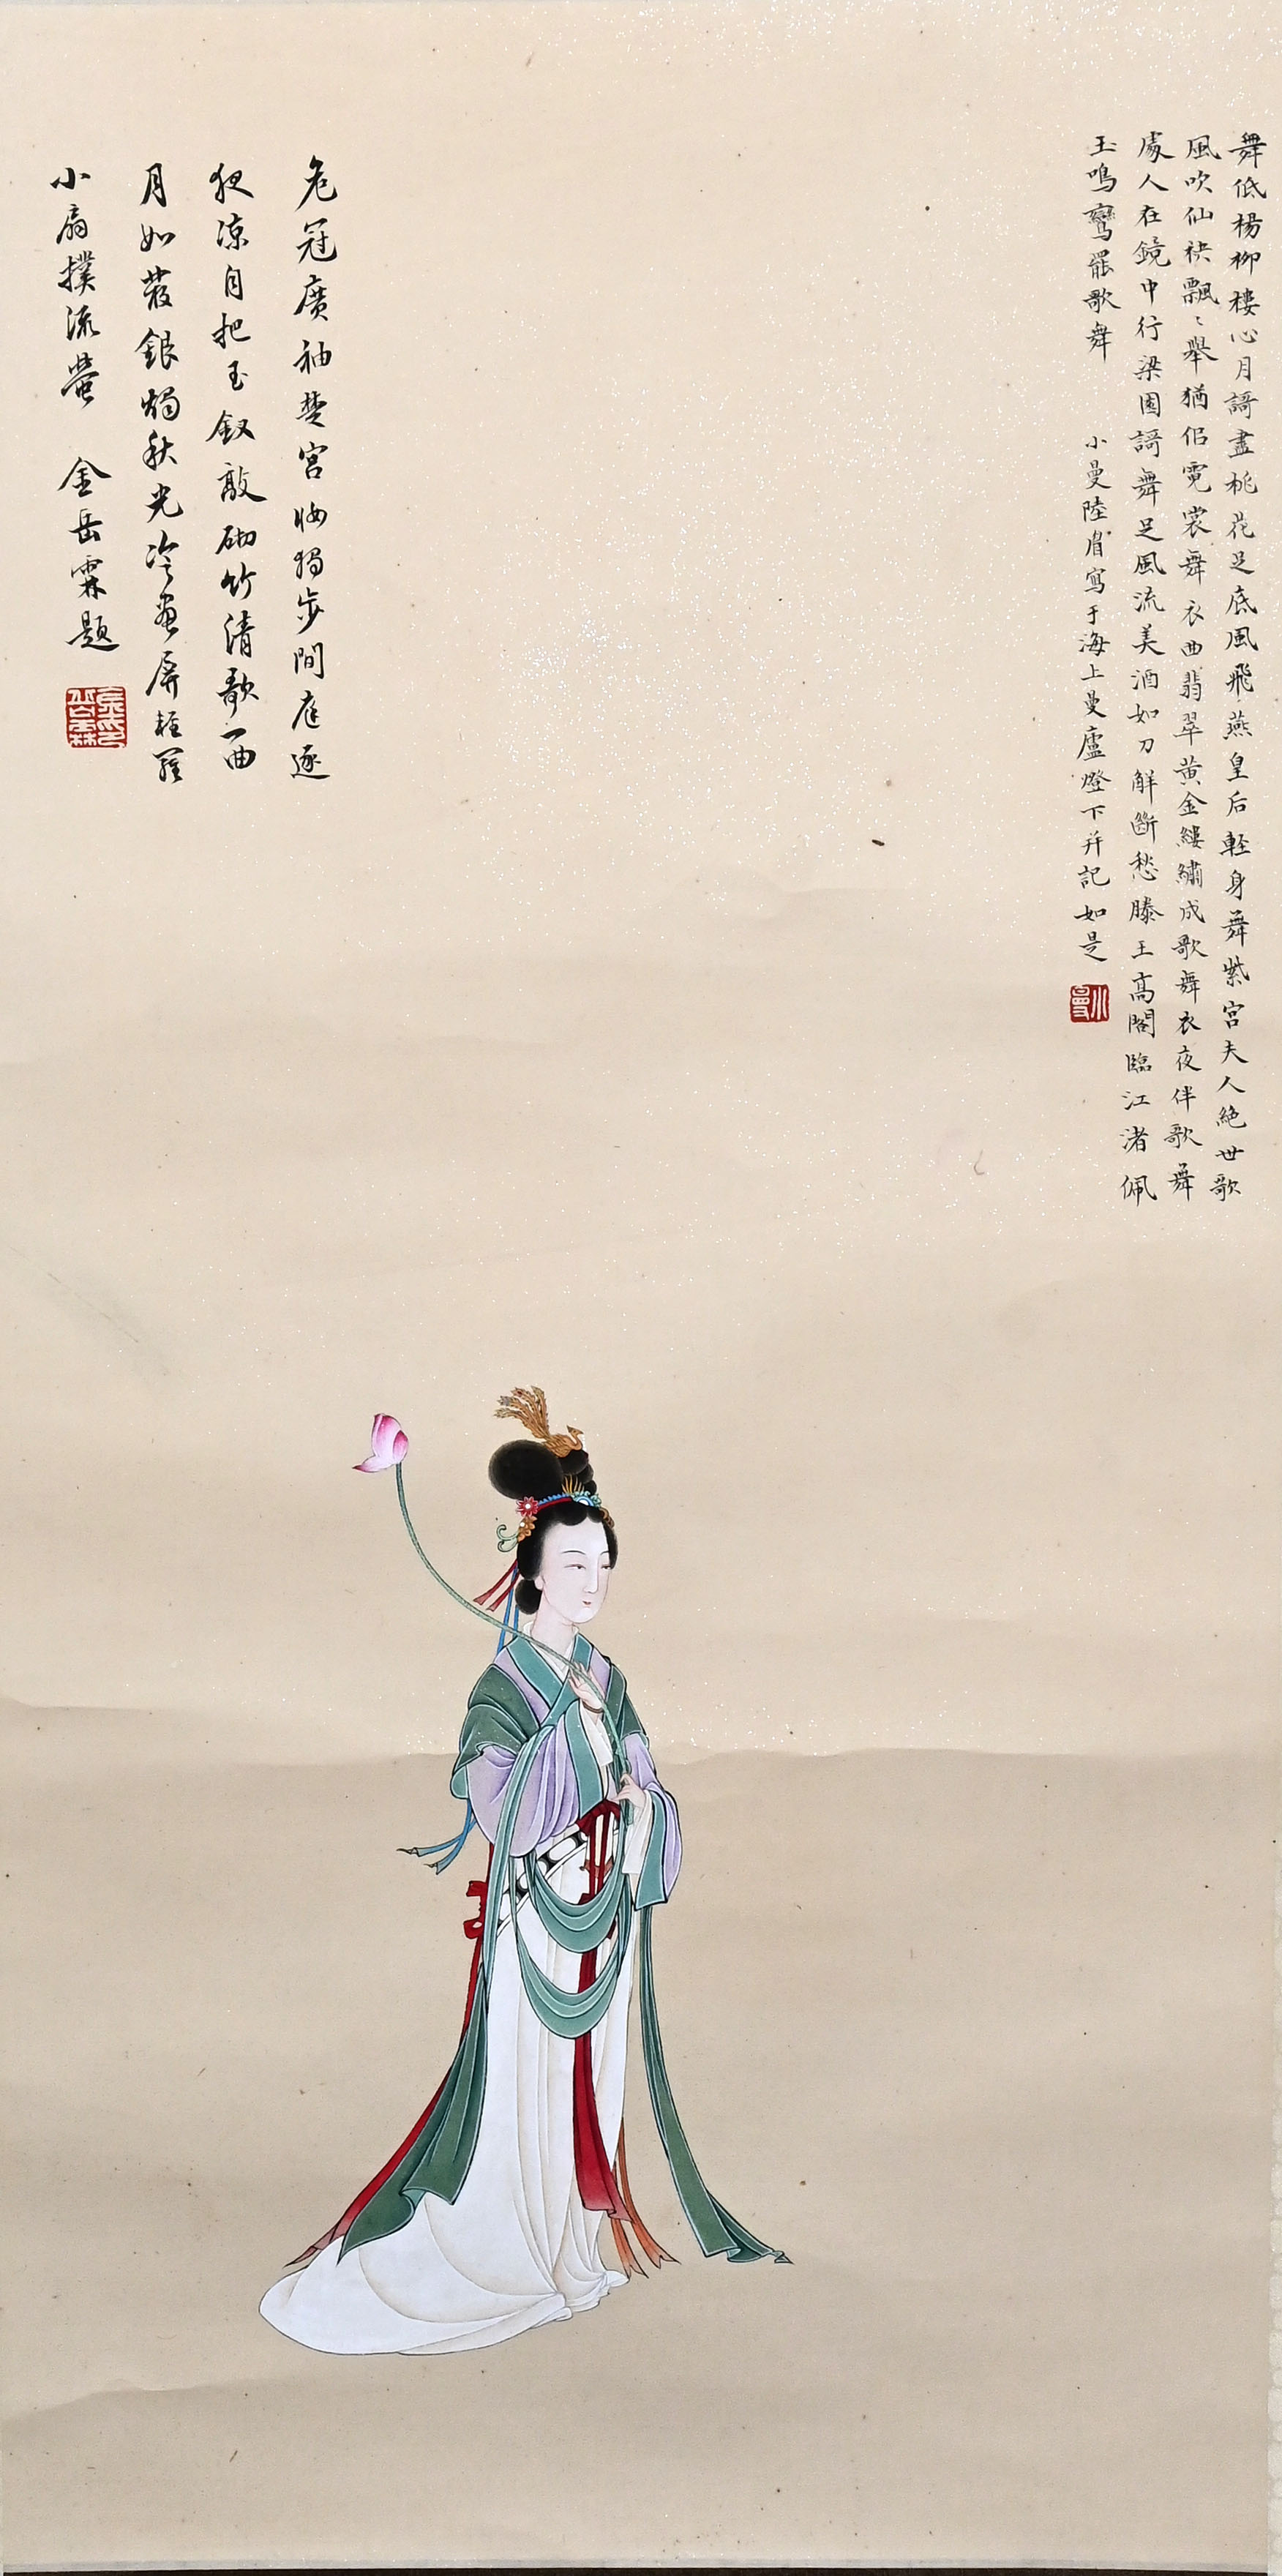 舞低楊柳樓心月謌盡桃花足底風飛燕皇后輕身舞紫宮夫人絕世歌
風吹仙袂飄〻舉猶佀霓裳舞衣曲翡翠黃金縷繡成歌舞衣夜伴歌舞
處人在鏡中行梁園謌舞足風流美酒如刀解斷愁滕王高閣臨江渚佩
玉鳴鸞罷歌舞
小曼陸眉寫于海上曼廬燈下并記如是
小曼
危冠廣袖楚宮妝獨步閒庭逐
夜涼自把玉釵敲砌竹清歌一曲
月如霜銀燭秋光冷畫屏輕羅
小扇撲流螢 金岳霖題